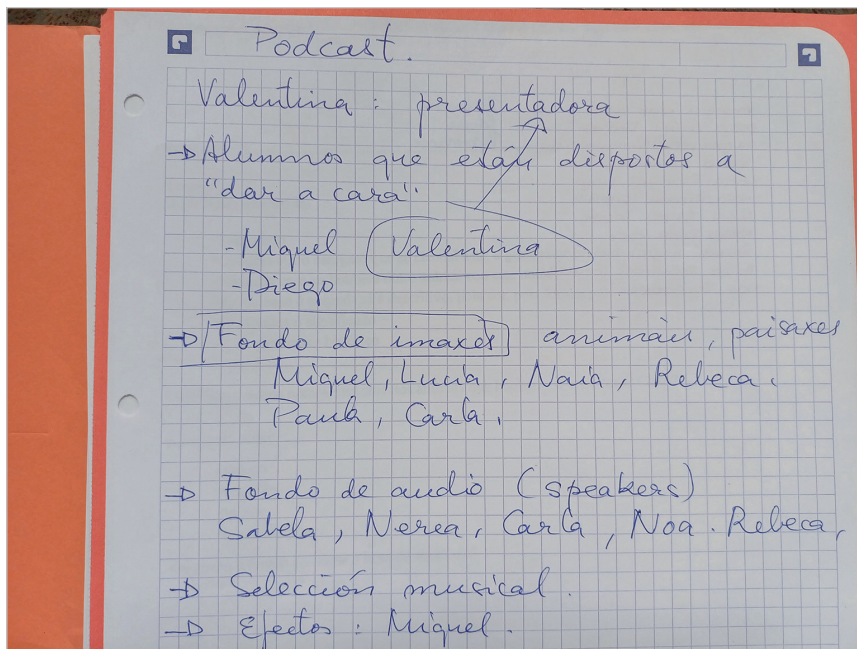 Podcast.
Valentina : presentadora
→ Alumnos que están dispostos a
"dar a cara".
- Miguel Valentina
- Diego
→ Fondo de imaxes animáis, paisaxes
Miguel, Lucía, Naia, Rebeca.
Paula, Carla.
→ Fondo de audio (speakers)
Sabela, Nerea, Carla, Noa. Rebeca,
→ Selección musical.
→ Efectos : Miguel.